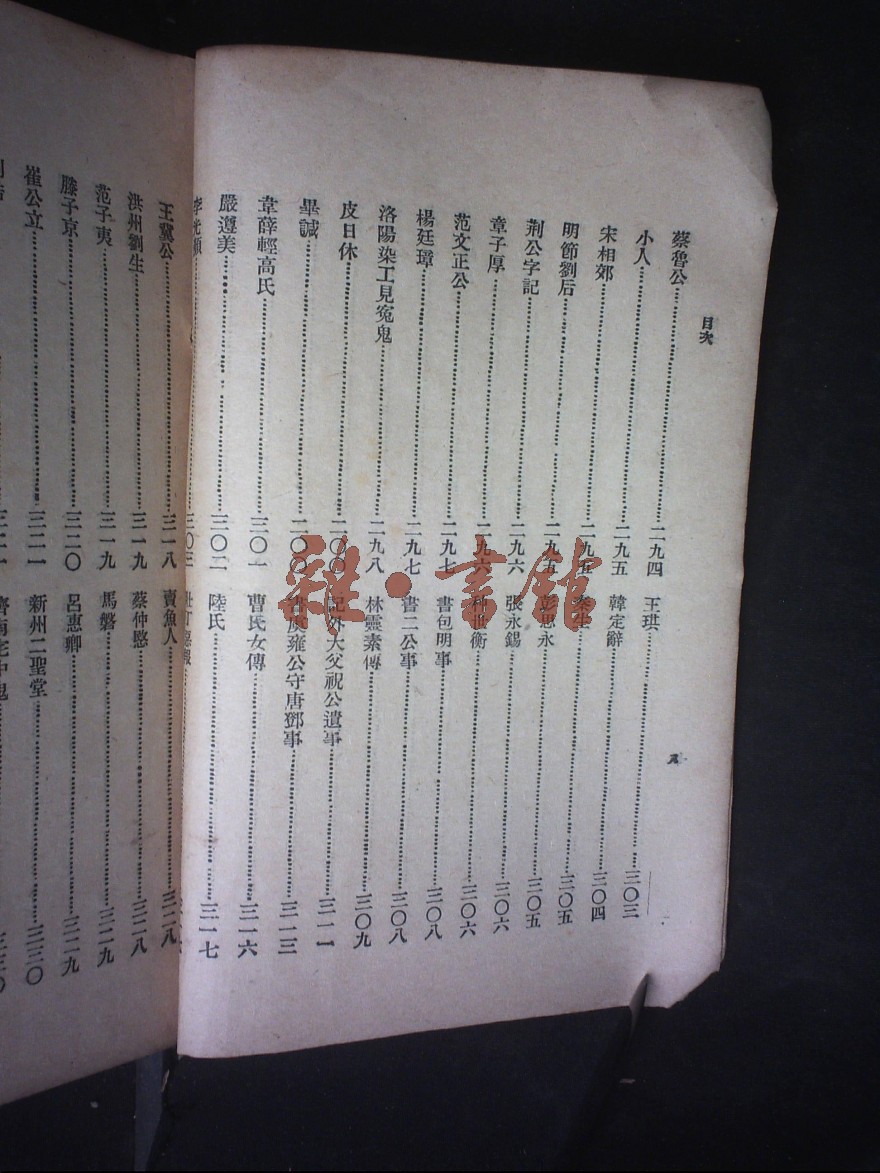 目次
蔡魯公……二九四 王珙……三〇三
小人……二九五 韓定辭……三〇四
宋相郊……二九五 秦生……三〇五
明節劉后……二九五 彭思永……三〇五
荆公字記……二九六 張永錫……三〇六
章子厚……二九六 种世衡……三〇六
范文正公……二九七 書包明事……三〇八
楊廷璋……二九七 書二公事……三〇八
洛陽染工見冤鬼……二九八 林靈素傳……三〇九
皮日休……二〇〇 記外大父祝公遺事……三一一
畢諴……二〇〇 書虞雍公守唐鄧事……三一三
韋薛輕高氏……三〇一 曹氏女傳……三一六
嚴遵美……三〇二 陸氏……三一七
李光顏……三〇三
王冀公……三一八 賣魚人……三二八
洪州劉生……三一九 蔡仲愍……三二八
范子夷……三一九 馬磐……三二九
滕子京……三二〇 呂惠卿……三二九
崔公立……三二一 新州二聖堂……三三〇
雜·書館